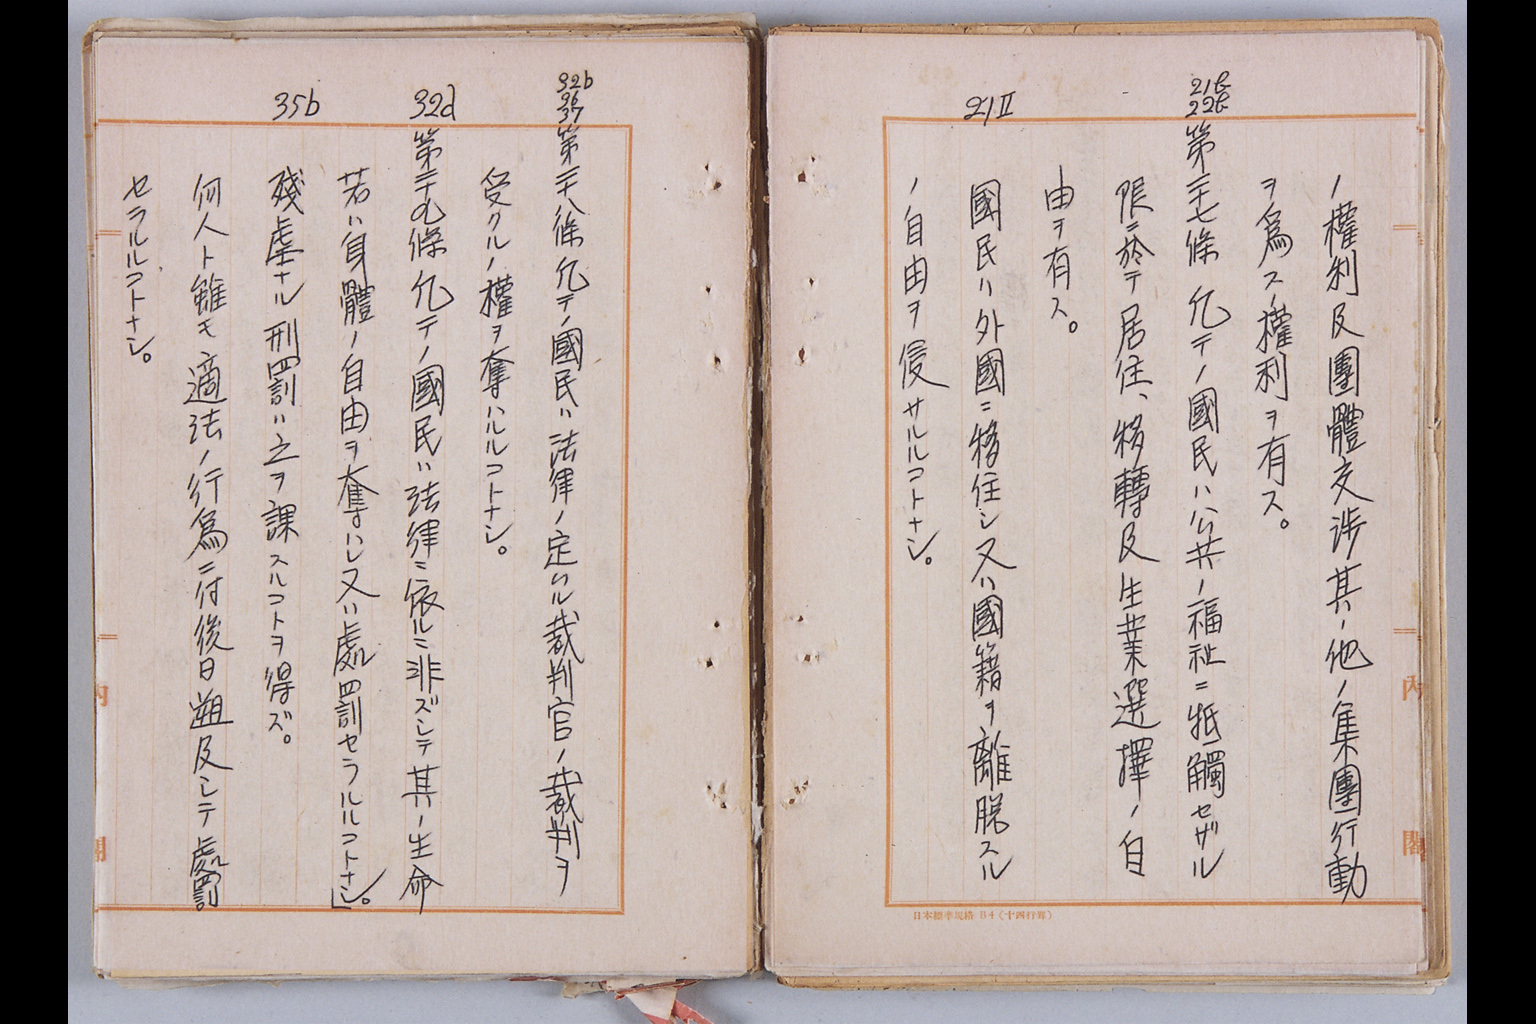 ノ權利及團體交渉其ノ他ノ集團行動
ヲ爲スノ權利ヲ有ス。
21b
22b
第二十七條 凡テノ國民ハ公共ノ福祉ニ牴觸セザル
限ニ於テ居住、移轉及生業選擇ノ自
由ヲ有ス。
21Ⅱ
國民ハ外國ニ移住シ又ハ國籍ヲ離脱スル
ノ自由ヲ侵サルルコトナシ。
日本標準規格 B4(十四行罫)
內閣
32b
37
第二十八條 凡テノ國民ハ法律ノ定ムル裁判官ノ裁判ヲ
受クルノ權ヲ奪ハルルコトナシ。
32d
第二十九條 凡テノ國民ハ法律ニ依ルニ非ズシテ其ノ生命
若ハ身體ノ自由ヲ奪ハレ又ハ處罰セラルルコトナシ。
殘虐ナル刑罰ハ之ヲ課スルコトヲ得ズ。
35b
何人ト雖モ適法ノ行爲ニ付後日遡及シテ處罰
セラルルコトナシ。
內閣